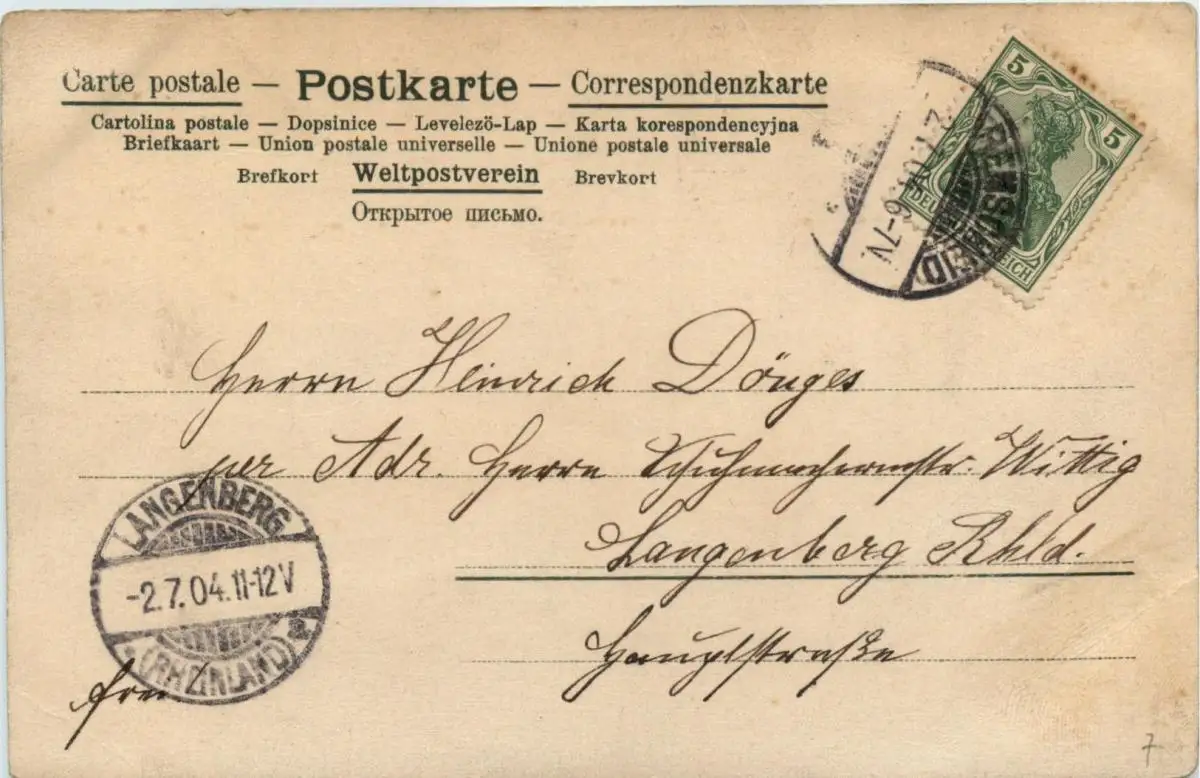 Carte postale — Postkarte — Correspondenzkarte
Cartolina postale — Dopsinice — Levelezö-Lap — Karta korespondencyjna
Briefkaart — Union postale universelle — Unione postale universale
Brefkort Weltpostverein Brevkort
Открытое письмо.
5 5
REMSCHEID
6-7V.
Herrn Heinrich Dönges
per Adr. Herrn Schuhmachermstr. Wittig
Langenberg Rhld.
Hauptstraße
LANGENBERG
-2.7.04.11-12V
(RHEINLAND)
frei
7